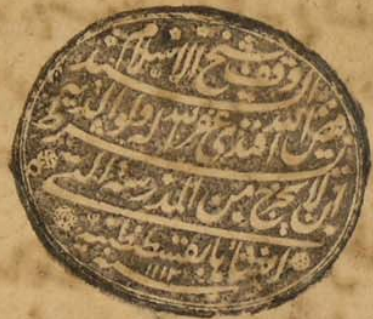 وقف شيخ الاسلام السيد
فيض الله افندي غفر الله له ولوالديه
بشرط ان لا يخرج من المدرسة التي
انشأها بقسطنطينية
سنة ١١١٢